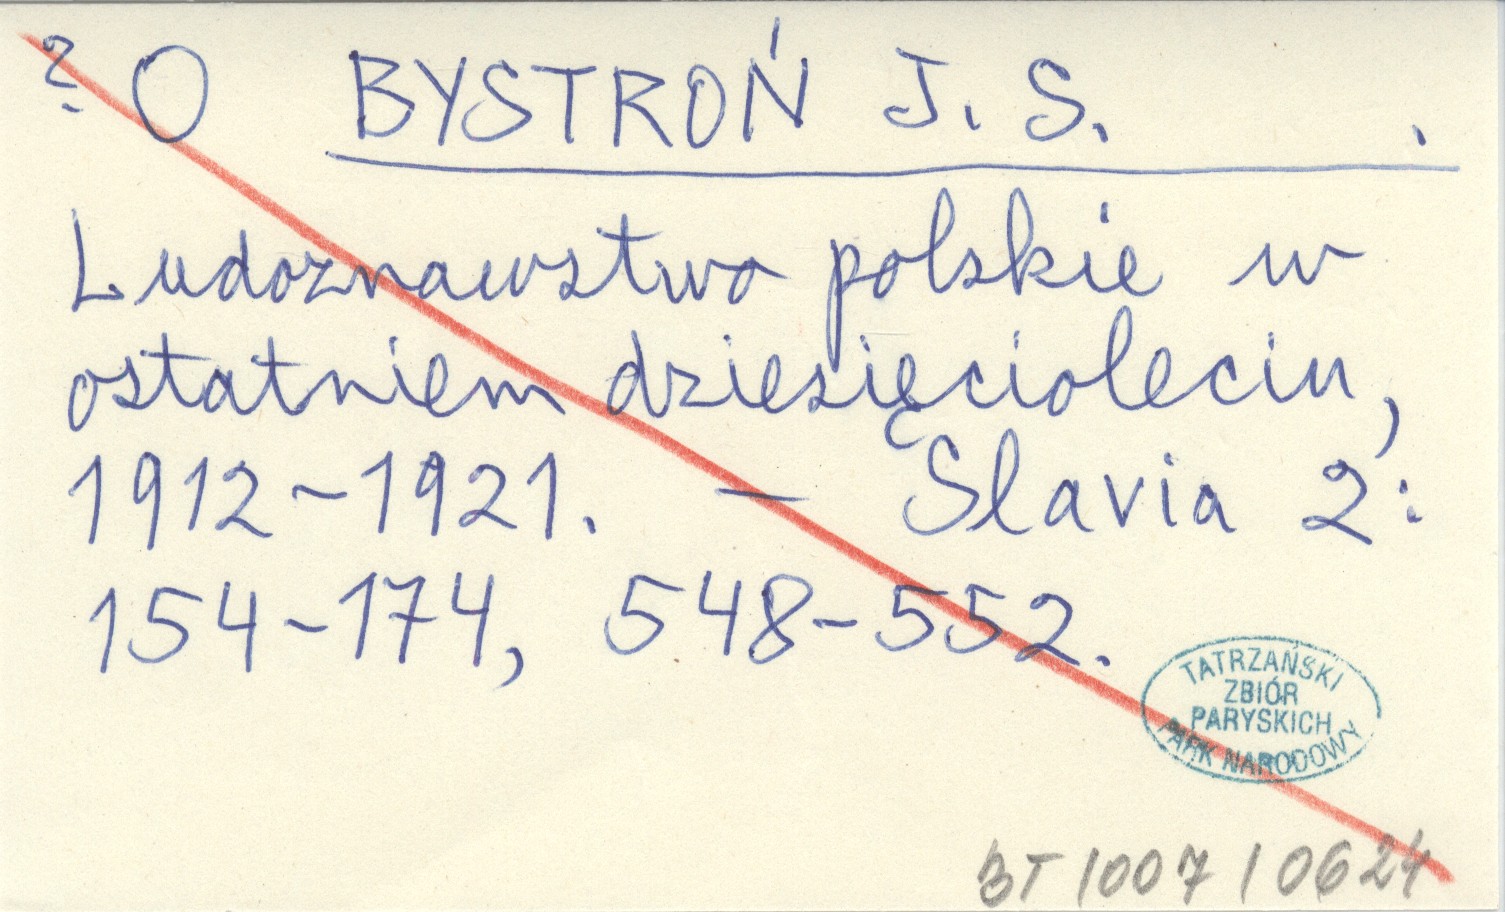 ? O BYSTROŃ J. S.
Ludoznawstwo polskie w
ostatniem dziesięcioleciu,
1912-1921. — Slavia 2:
154-174, 548-552.
TATRZAŃSKI
ZBIÓR
PARYSKICH
PARK NARODOWY
BT 1007 / 0624